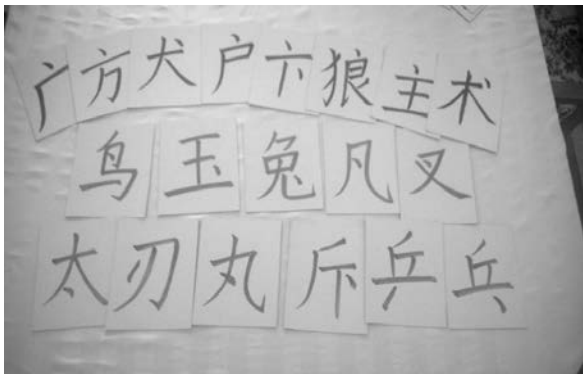 广方犬户卞狼主术
鸟玉兔凡叉
太刃丸斥乒乓